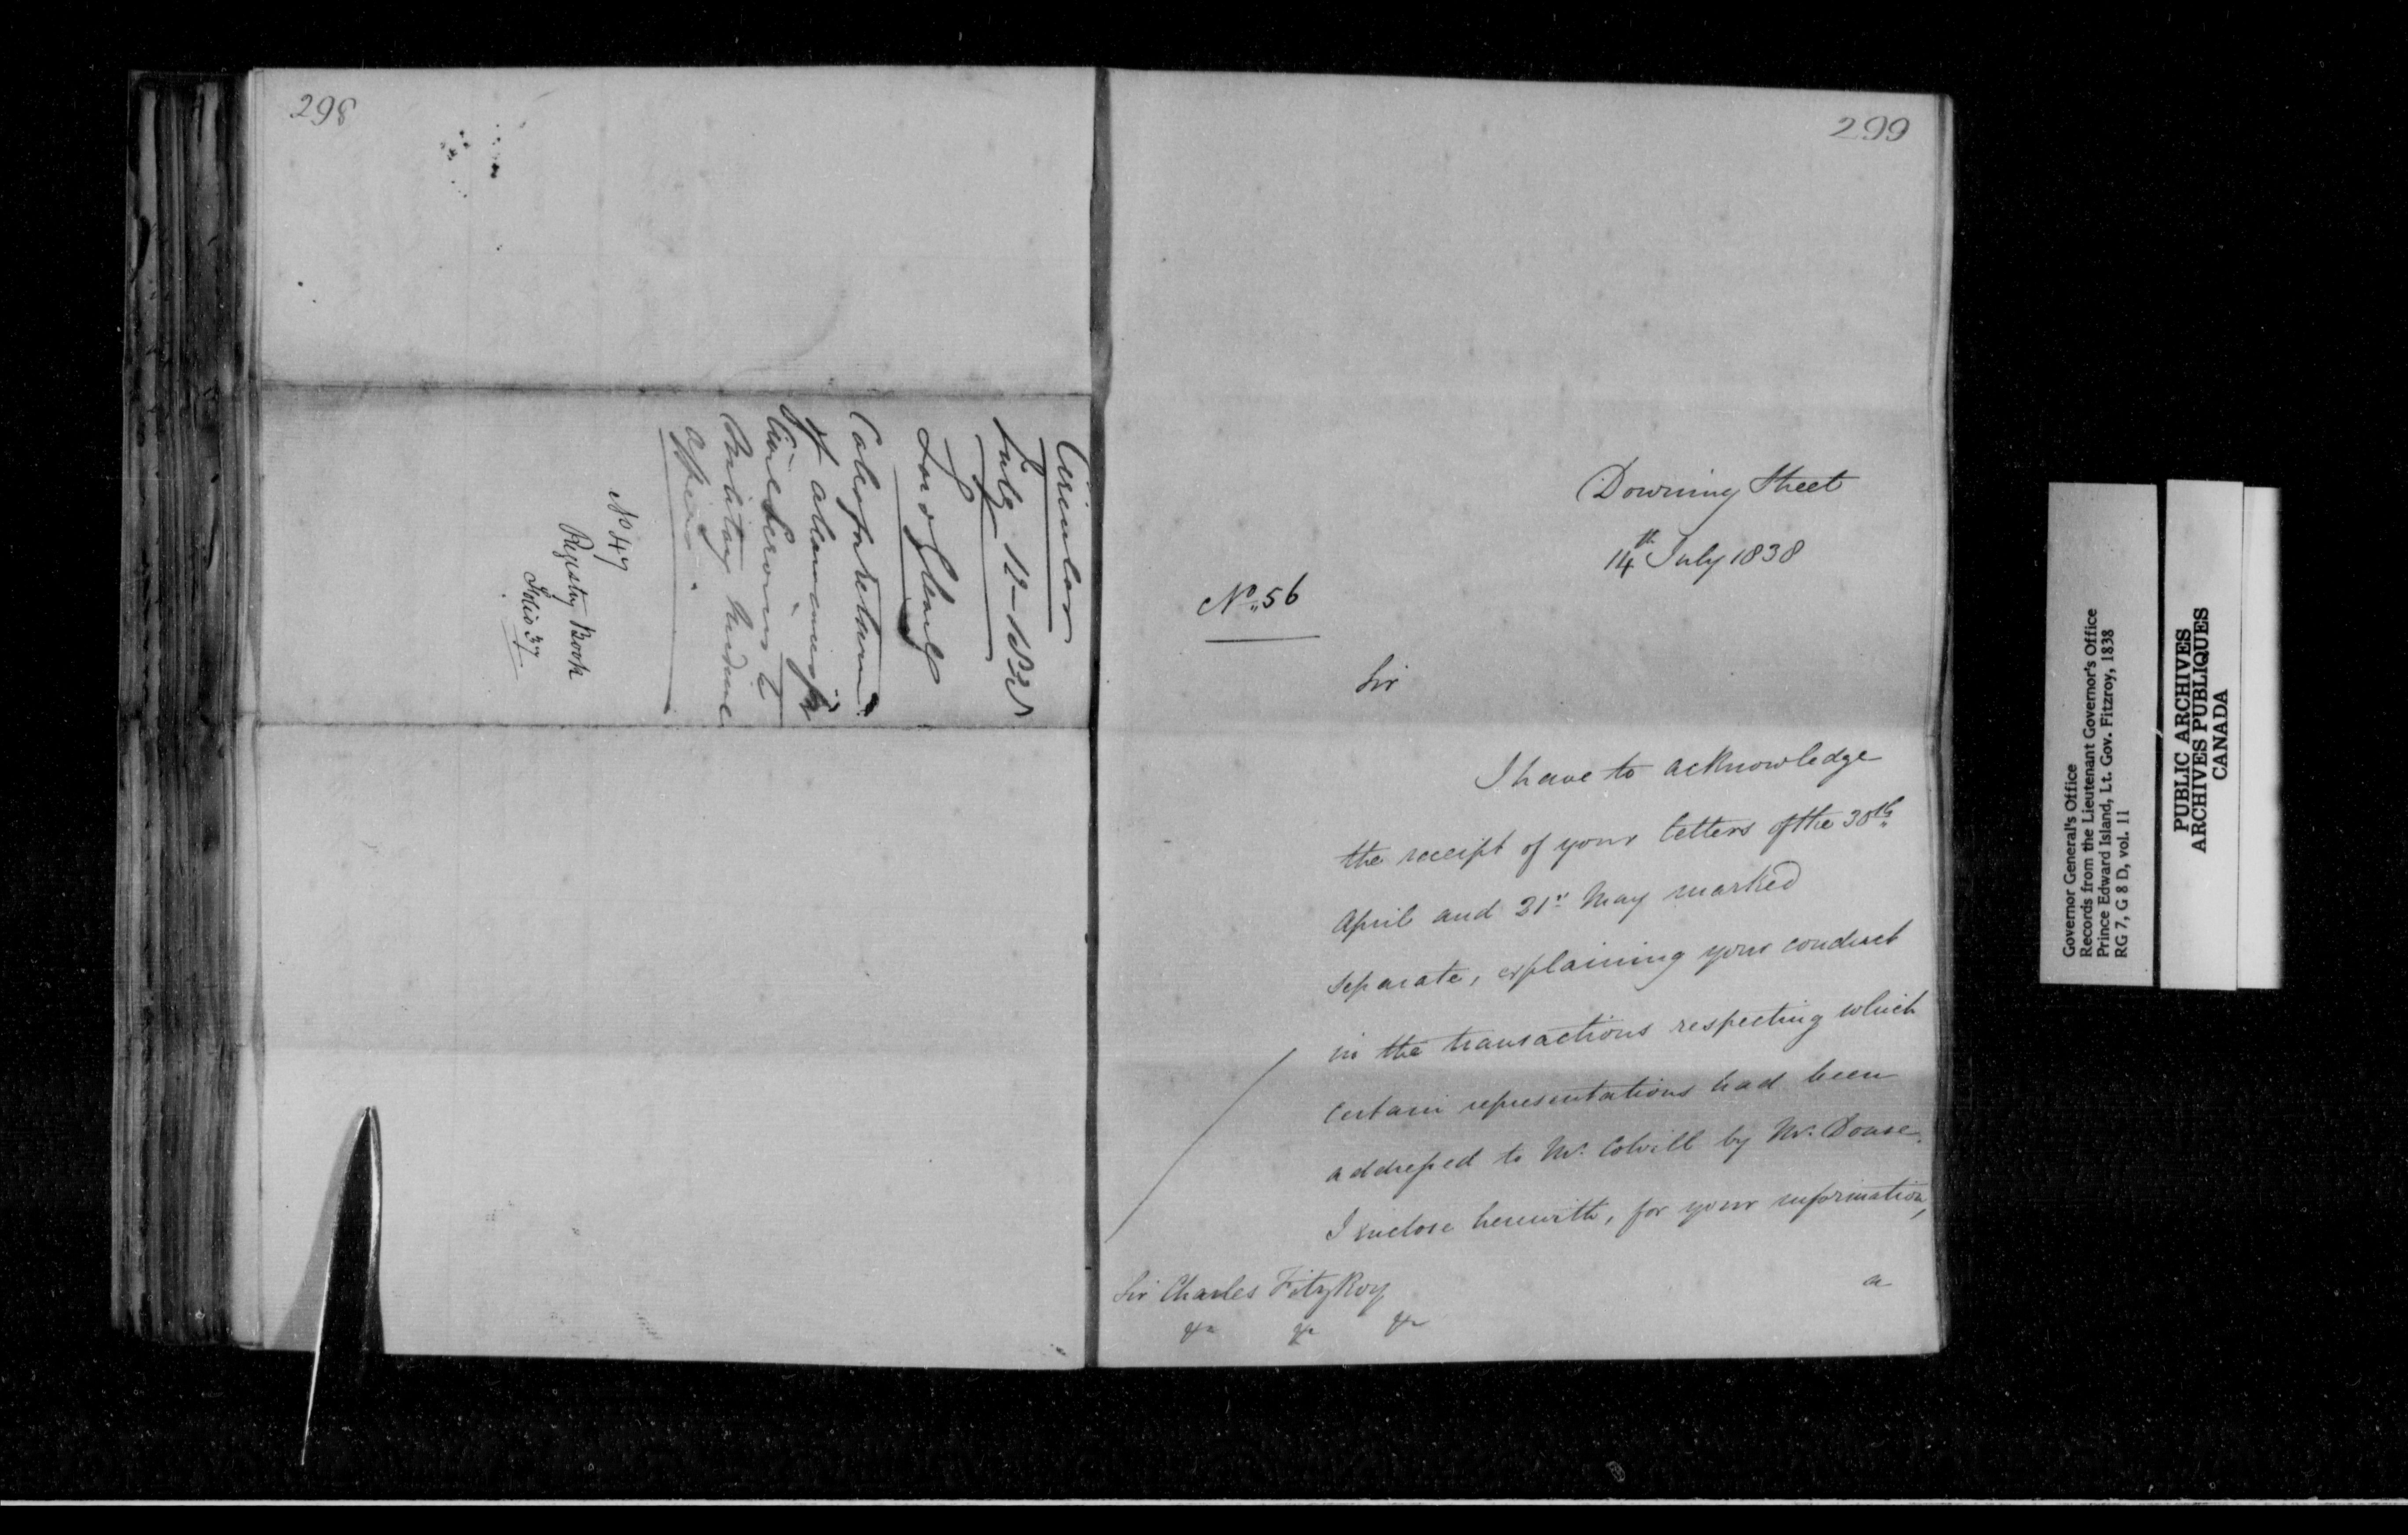 298
Circular
July 12 - 1838
Lord Glenelg
of allowances
Military
N° 47
Registry Book
Folio 37
299
Downing Street
14th July 1838
No. 56
Sir
I have to acknowledge
the receipt of your letters of the 30th
April and 21st May marked
separate, explaining your conduct
in the transactions respecting which
certain representations had been
addressed to Mr. Colvill by Mr. Douse.
I inclose herewith, for your information,
a
Sir Charles FitzRoy
&c &c &c
Governor General's Office
Records from the Lieutenant Governor's Office
Prince Edward Island, Lt. Gov. Fitzroy, 1838
RG 7, G 8 D, vol. 11
PUBLIC ARCHIVES
ARCHIVES PUBLIQUES
CANADA